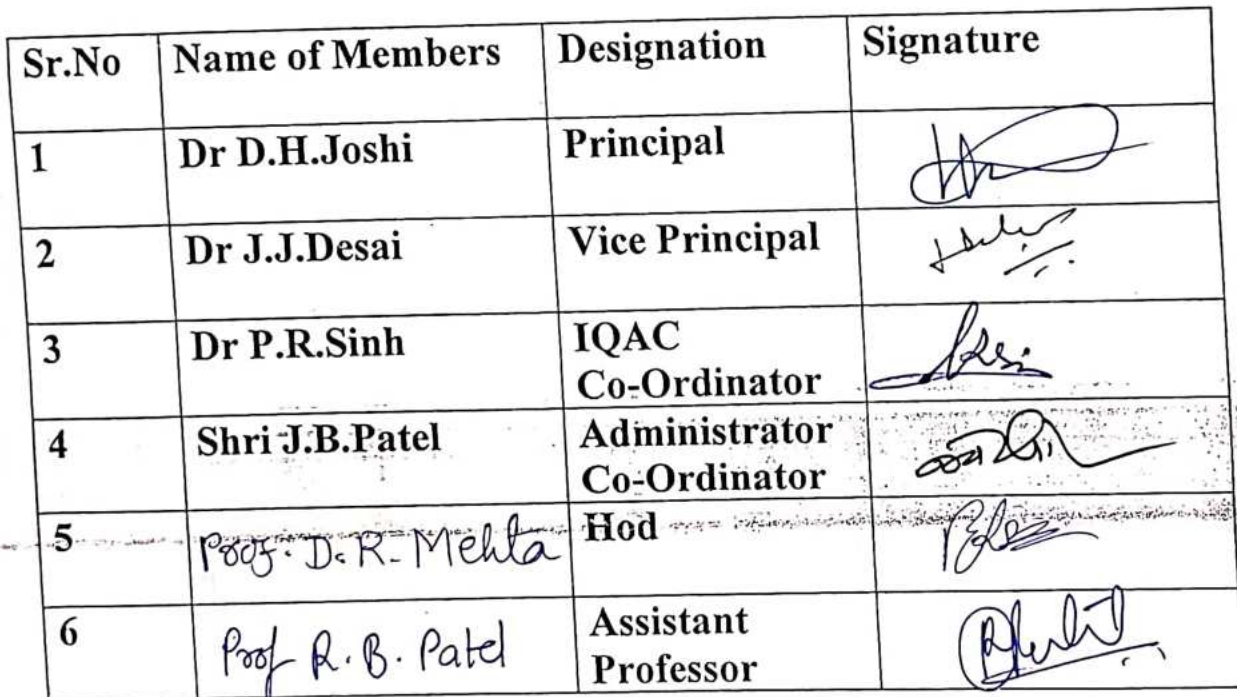 Sr.No Name of Members Designation Signature
1 Dr D.H.Joshi Principal
2 Dr J.J.Desai Vice Principal
3 Dr P.R.Sinh IQAC
Co-Ordinator
4 Shri J.B.Patel Administrator
Co-Ordinator
5 Prof. D.R. Mehta Hod
6 Prof R.B. Patel Assistant
Professor